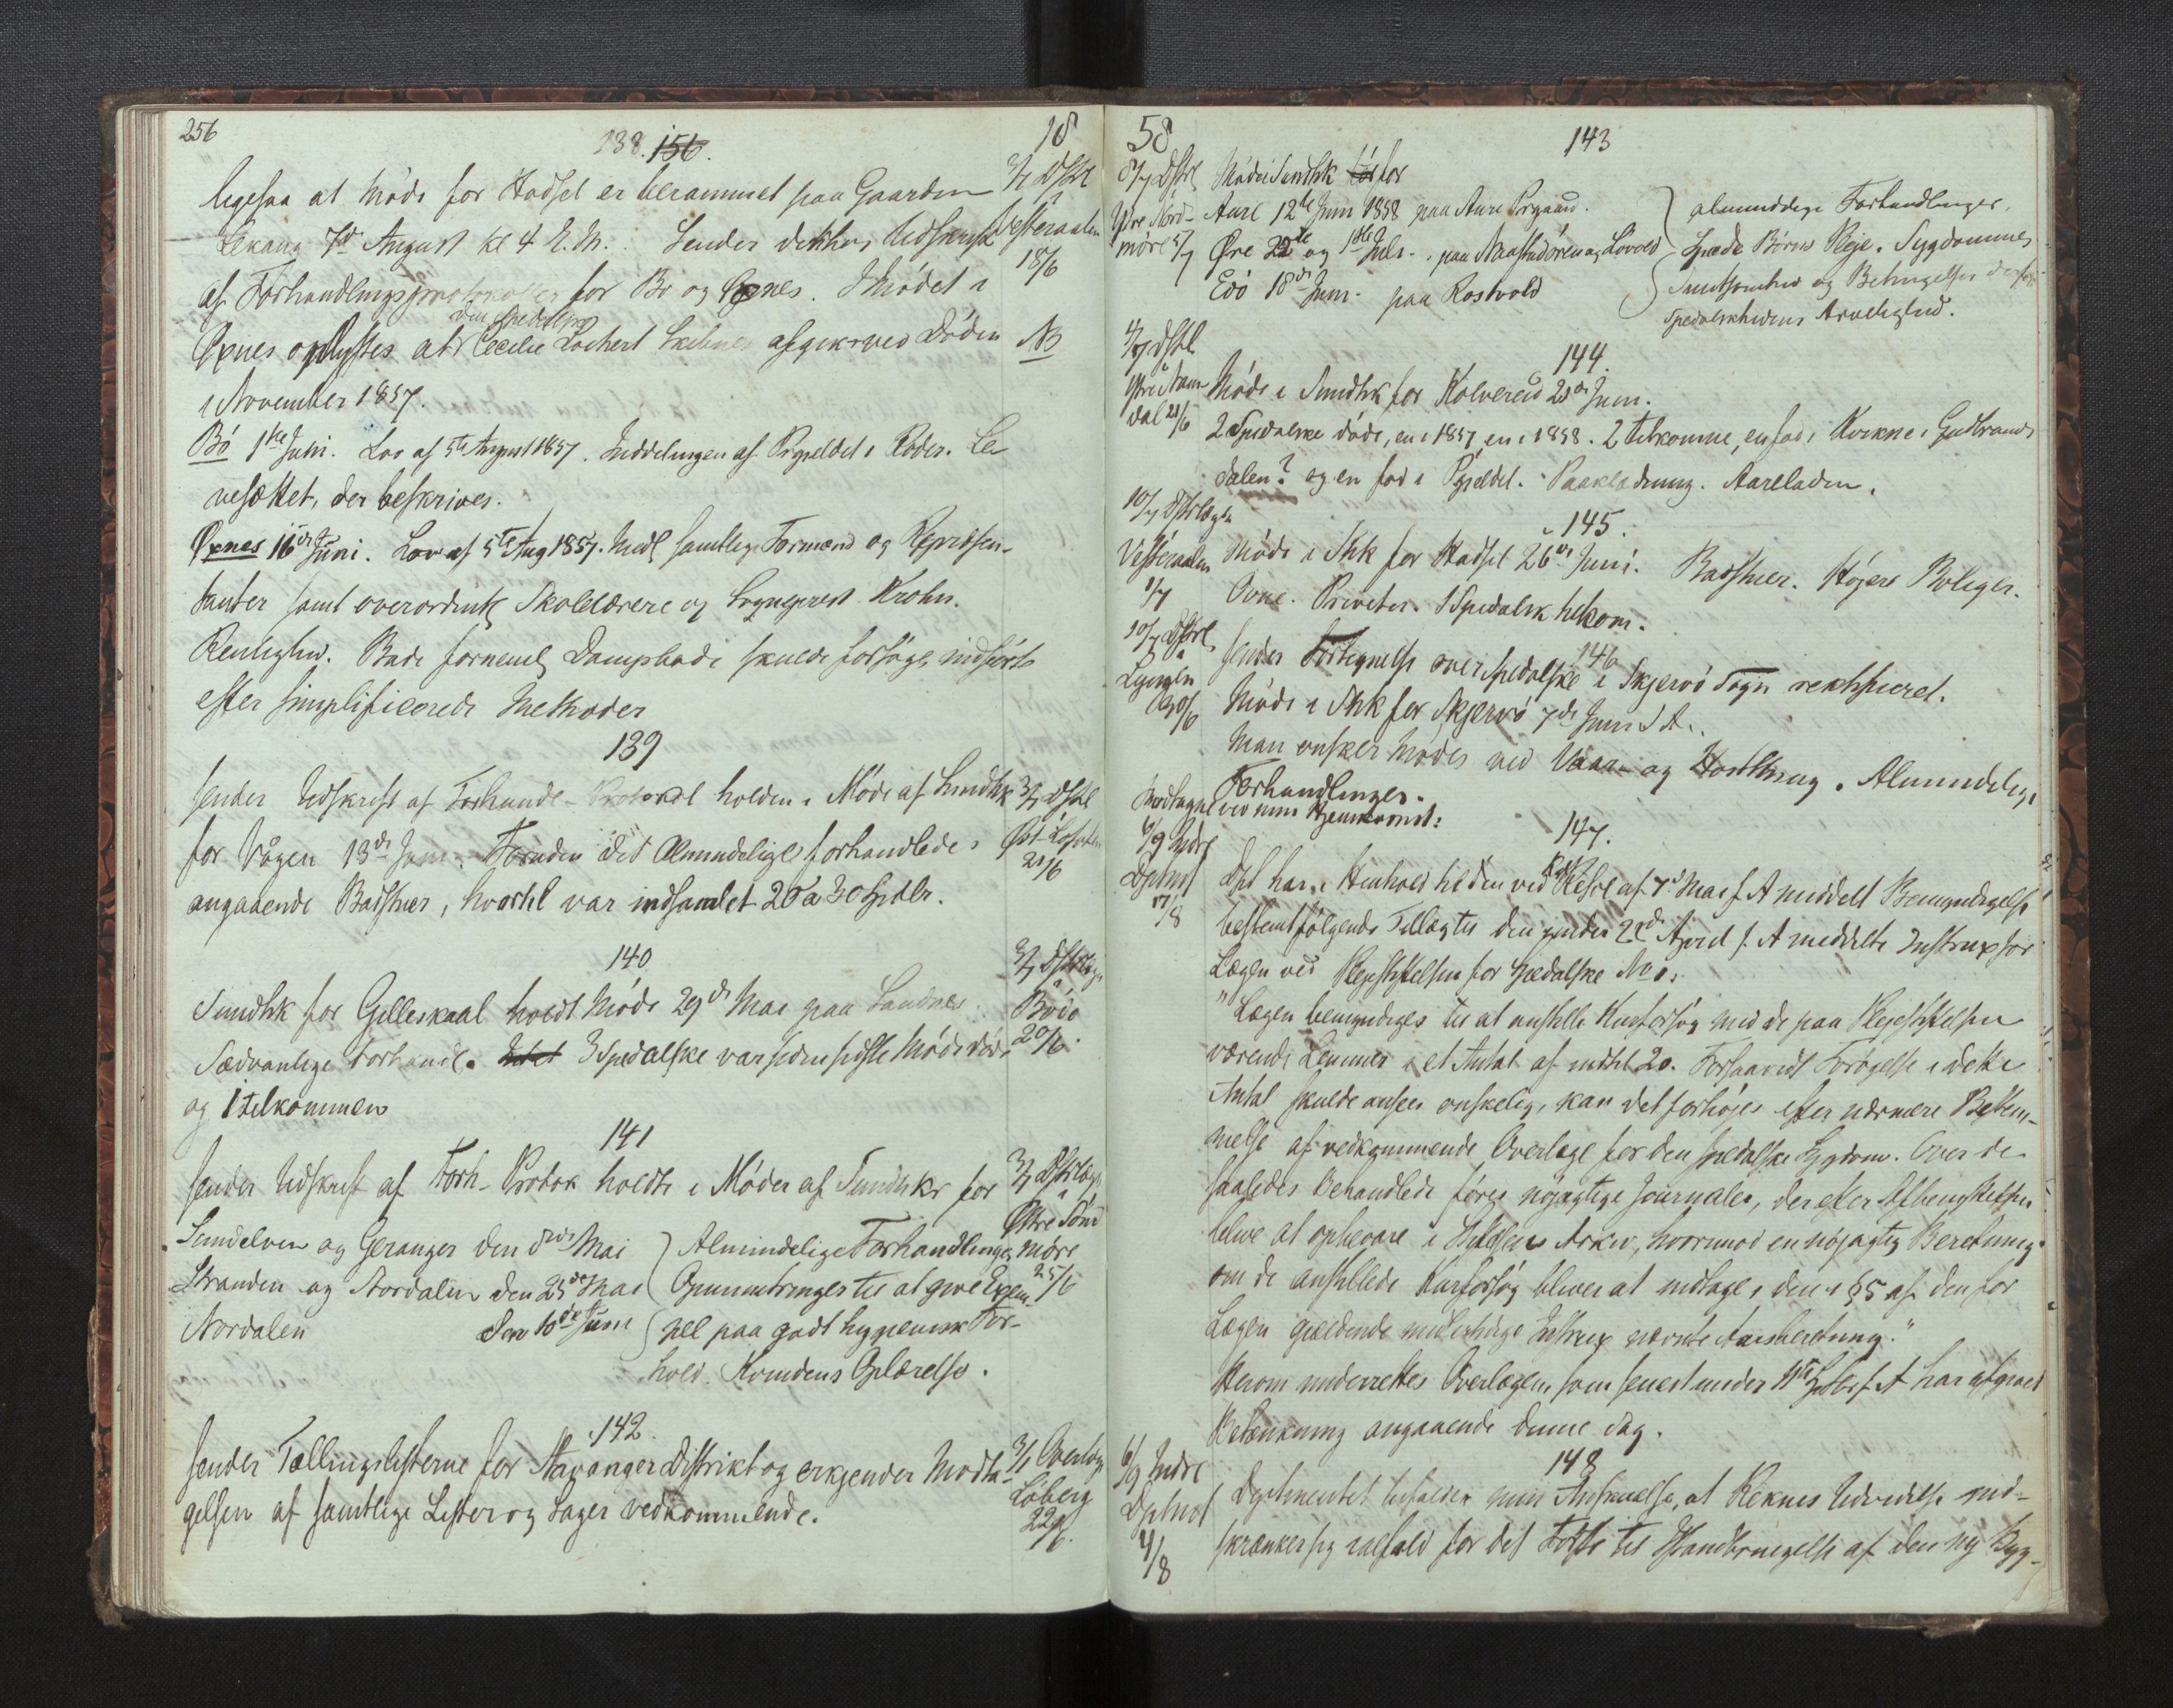 256
18
138. 156.
ligesaa at Møde for Hadsel er berammet paa Gaarden
3/7 Dstrl
Lekang 7de August kl 4 E.M. Sender derhos Udskrift
Vesteraalen
18/6
af Forhandlingsprotokollen for Bø og Øxnes. I Mødet i
den spedalske
Øxnes oplystes at Cecilie Lochert afgik ved Døden
NB
i November 1857.
Bø 1ste Juni. Lov af 5te August 1857. Inddelingen af Prgjeldet i Roder. Le-
vesættet, der beskrives.
Øxnes 16de Juni. Lov af 5te Aug 1857. Medl samtlige Formænd og Repræsen-
tanter samt overordentl Skolelærere og Sogneprest Krohn.
Renlighed. Bade fornemlig Dampbade skulde forsøges indført
efter simplificerede Methoder
139
sender Udskrift af Forhandl-Protokol holden i Møde af Sundhk
3/7 Dstrl
for Vågen 13de Juni. Foruden det Almindelige forhandledes
Øst-Lofoten
21/6
angaaende Badstuer, hvortil var indsamlet 20 a 30 Spdlr.
140
3/7 Dstrlæge
Sundhk for Gilleskaal holdt Møde 29de Mai paa Sandnes
Bodø
20/6.
Sædvanlige Forhandl. 3 Spedalske var siden sidste Møde døde
og 1 tilkommen
141
sender Udskrift af Forh-Protok holdte i Møder af Sundhkr for
3/7 Dstrlæge
i
Østre Sønd
Sundelven og Geranger den Mai
Almindelige Forhandlinger
møre
25/6
Stranden og Nordalen den 25de Mai
Opmuntringer til at give Exem-
Nordalen den 10de Juni
pel paa godt hygienisk For-
hold. Kvindens Oplærelse.
142.
sender Tællingslisterne for Stavanger Distrikt og erkjender Modta-
3/7 Overlæge
Løberg
22/6.
gelsen af samtlige Lister og Sager vedkommende.
58
143
8/7 Dstrl Møde i Sundhk for
Ytre Nord-
møre 5/7
Aure 12te Juni 1858 paa Aure Prgaard.
Øre 22de og 1ste Juli. paa og Lovold
Edø 18de Juni. paa Rostvold
almindelige Forhandlinger,
spæde Børns Pleje. Sygdommes
Smitsomhed og Betingelser derfor
Spedalskhedens Arvelighed.
4/7 Dstrl
i
Ytre Nam-
dal 28/6
144.
Møde i Sundhk for Kolvereid 23de Juni.
2 Spedalske døde, en i 1857, en i 1858. 2 tilkomne, en fød i Kvikne i Gudbrands
dalen? og en fød i Pgjeldet. Paaklædning. Aareladen.
10/7 Dstrlægen
i
Vesteraalen
1/7
145.
Møde i Shk for Hadsel 26de Juni. Badstuer. Højere Boliger.
Ovne. Priveter. 1 Spedalsk tilkom.
10/7 Dstrl
i
Lyngen
30/6
146
sender Fortegnelse over Spedalske i Skjervø Sogn rektificeret.
Møde i Shk for Skjervø 7de Juni d A.
Man ønsker Mødes ved Vaar- og Høstthing. Almindelige
Forhandlinger.
Modtagne ved min Hjemkomst:
147.
6/9 Indre
Dptmt
17/8
Dpt har i Henhold til den ved Kgl Resol af 7de Mai f A meddelt Bemyndigelse
bestemt følgende Tillæg til den under 22de April f. A meddelte Instrux for
Lægen ved Plejestiftelsen for Spedalske No 1.
"Lægen bemyndiges til at anstille Kurforsøg med de paa Plejestiftelsen
værende Lemmer i et Antal af indtil 20. Forsaavidt Forøgelse i dette
Antal skulde ansees ønskelig, kan det forhøjes efter nærmere Bestem-
melse af vedkommende Overlæge for den spedalske Sygdom. Over de
saaledes Behandlede føres nøjagtige Journaler, der efter Afbenyttelsen
blive at opbevare i Stiftelsens Arkiv, hvorimod en nøjagtig Beretning
om de anstillede Kurforsøg bliver at indtage i den i §5 af den for
Lægen gjældende midlertidige Instrux nævnte Aarsberetning."
Herom underrettes Overlægen, som senest under 11te f A har afgivet
Betænkning angaaende denne Sag.
148
6/9 Indre
Dptmt
4/8
Departementet bifalder min Anskuelse, at Reknes Udvidelse ind-
skrænker sig ialfald for det første til Istandbringelse af den ny Byg-